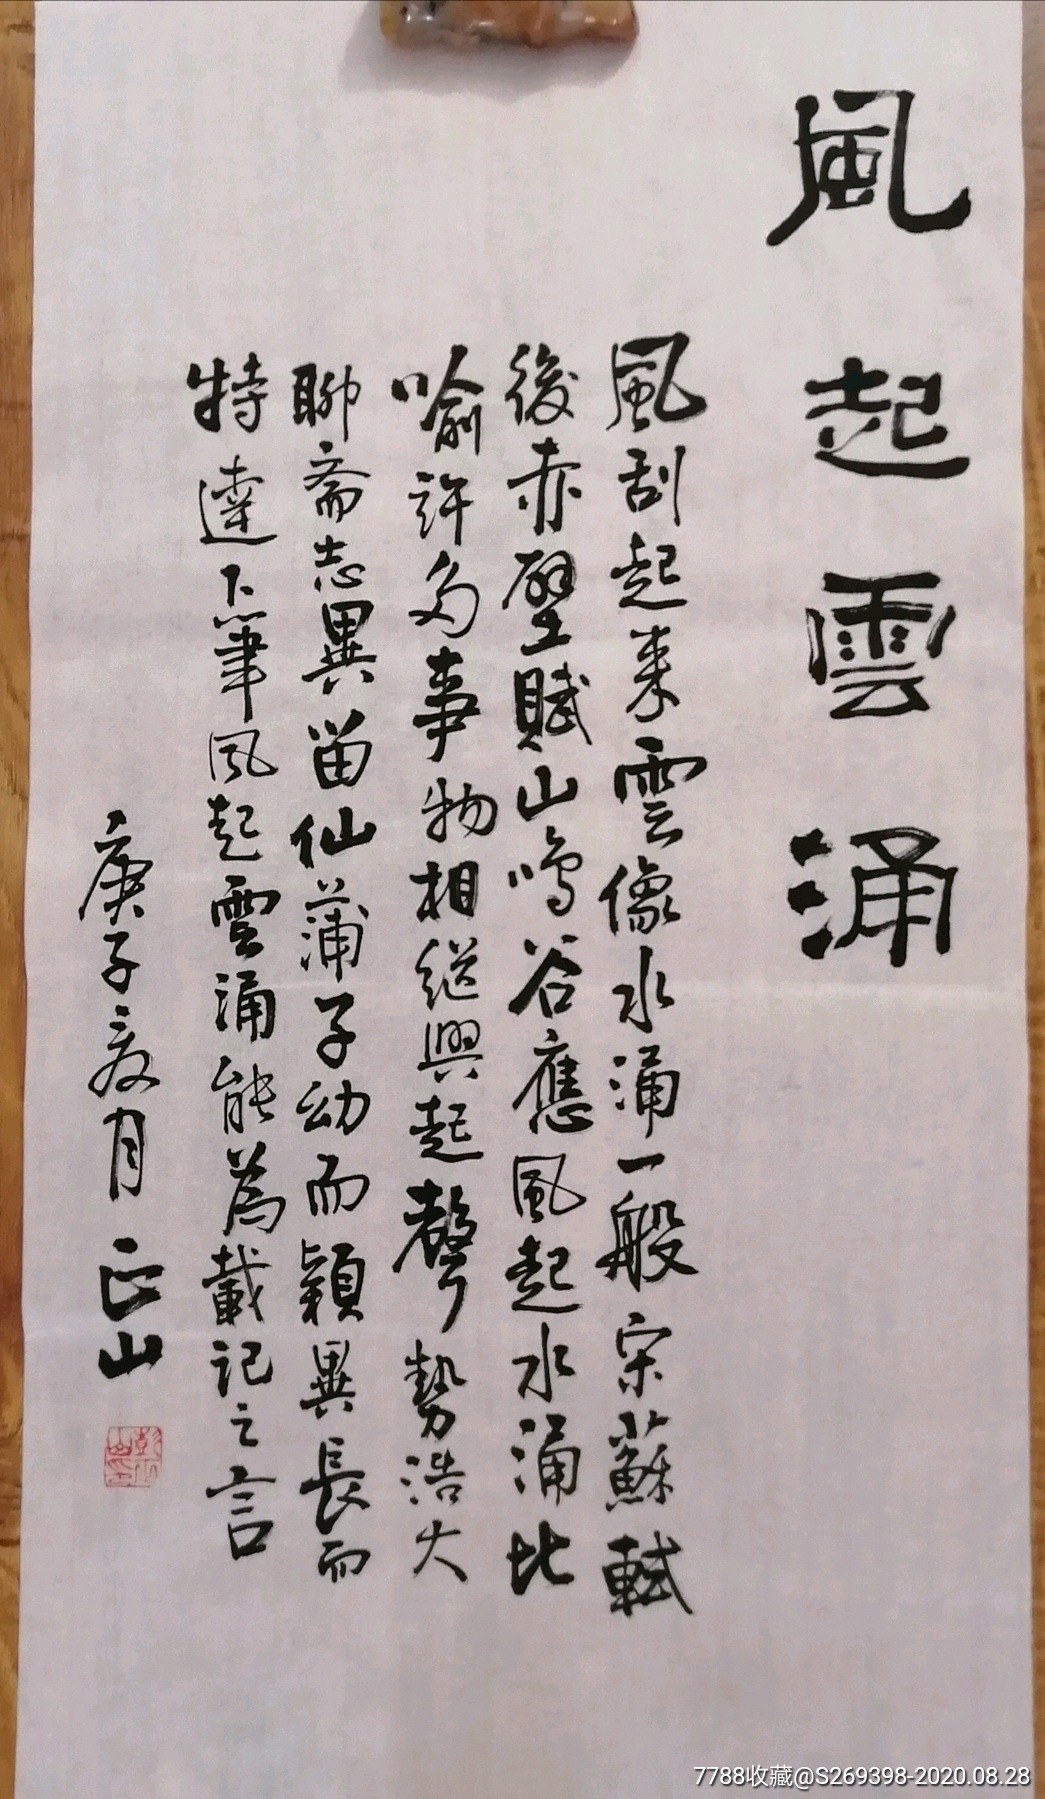 風起雲涌
風刮起来雲像水涌一般宋蘇軾
後赤壁賦山鳴谷應風起水涌比
喻許多事物相继興起聲勢浩大
聊斋志異留仙蒲子幼而穎異長而
特達下筆風起雲涌能為載記之言
庚子夏月 正山
7788收藏@S269398-2020.08.28